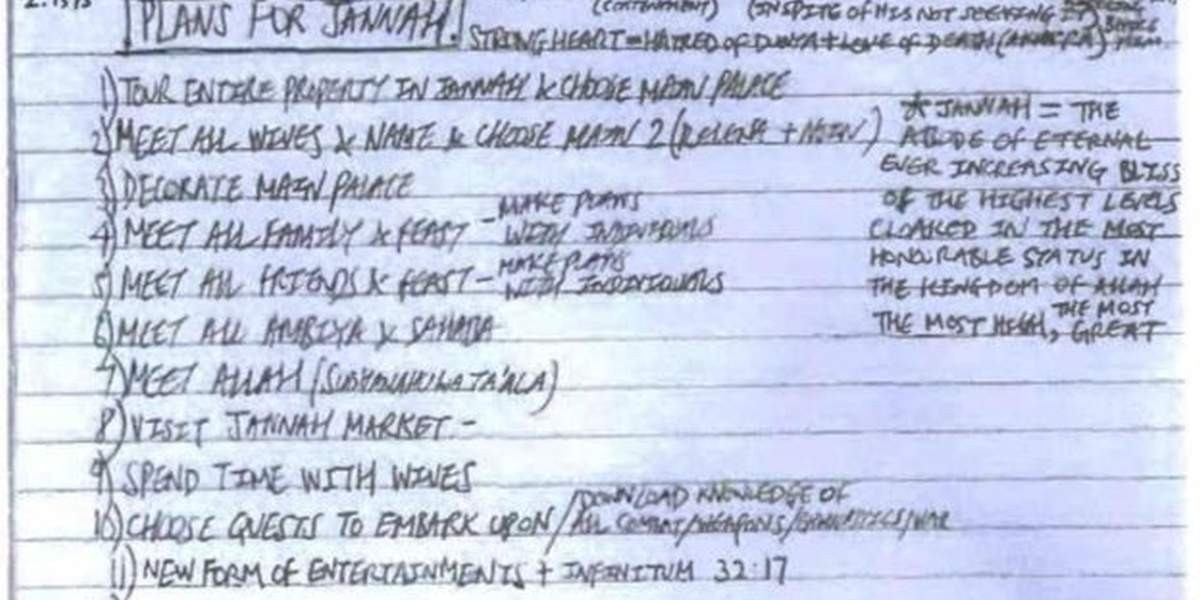 (CONTENTMENT) (IN SPITE OF HIS NOT SEEKING IT)
PLANS FOR JANNAH.
STRONG HEART = HATRED OF DUNYA + LOVE OF DEATH (AKHIRA)
1) TOUR ENTIRE PROPERTY IN JANNAH & CHOOSE MAIN PALACE
2) MEET ALL WIVES & NAME & CHOOSE MAIN 2 ( + )
3) DECORATE MAIN PALACE
4) MEET ALL FAMILY & FEAST - MAKE PLANS
WITH INDIVIDUALS
5) MEET ALL FRIENDS & FEAST - MAKE PLANS
WITH INDIVIDUALS
6) MEET ALL AMBIYA & SAHABA
7) MEET ALLAH (SUBHANAHU WA TA'ALA)
8) VISIT JANNAH MARKET -
9) SPEND TIME WITH WIVES
10) CHOOSE QUESTS TO EMBARK UPON / DOWNLOAD KNOWLEDGE OF
ALL COMBAT/WEAPONS/ /WAR
11) NEW FORM OF ENTERTAINMENTS + INFINITUM 32:17
* JANNAH = THE
ABODE OF ETERNAL
EVER INCREASING BLISS
OF THE HIGHEST LEVELS
CLOAKED IN THE MOST
HONOURABLE STATUS IN
THE KINGDOM OF ALLAH
THE MOST HIGH, THE MOST
GREAT